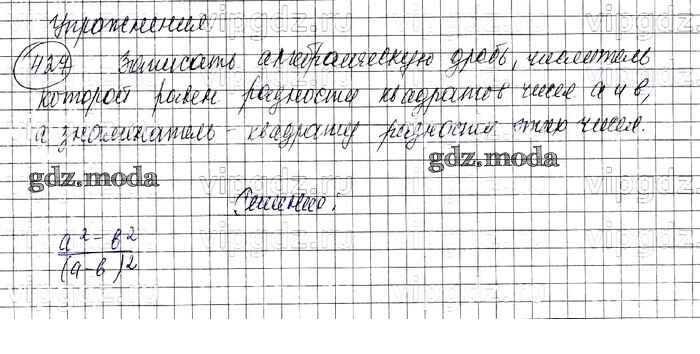 Упражнения
427 Записать алгебраическую дробь, числитель
которой равен разности квадратов чисел a и b,
а знаменатель - квадрату разности этих чисел.
gdz.moda
gdz.moda
Решение:
a² - b²
(a-b)²
vipgdz.ru